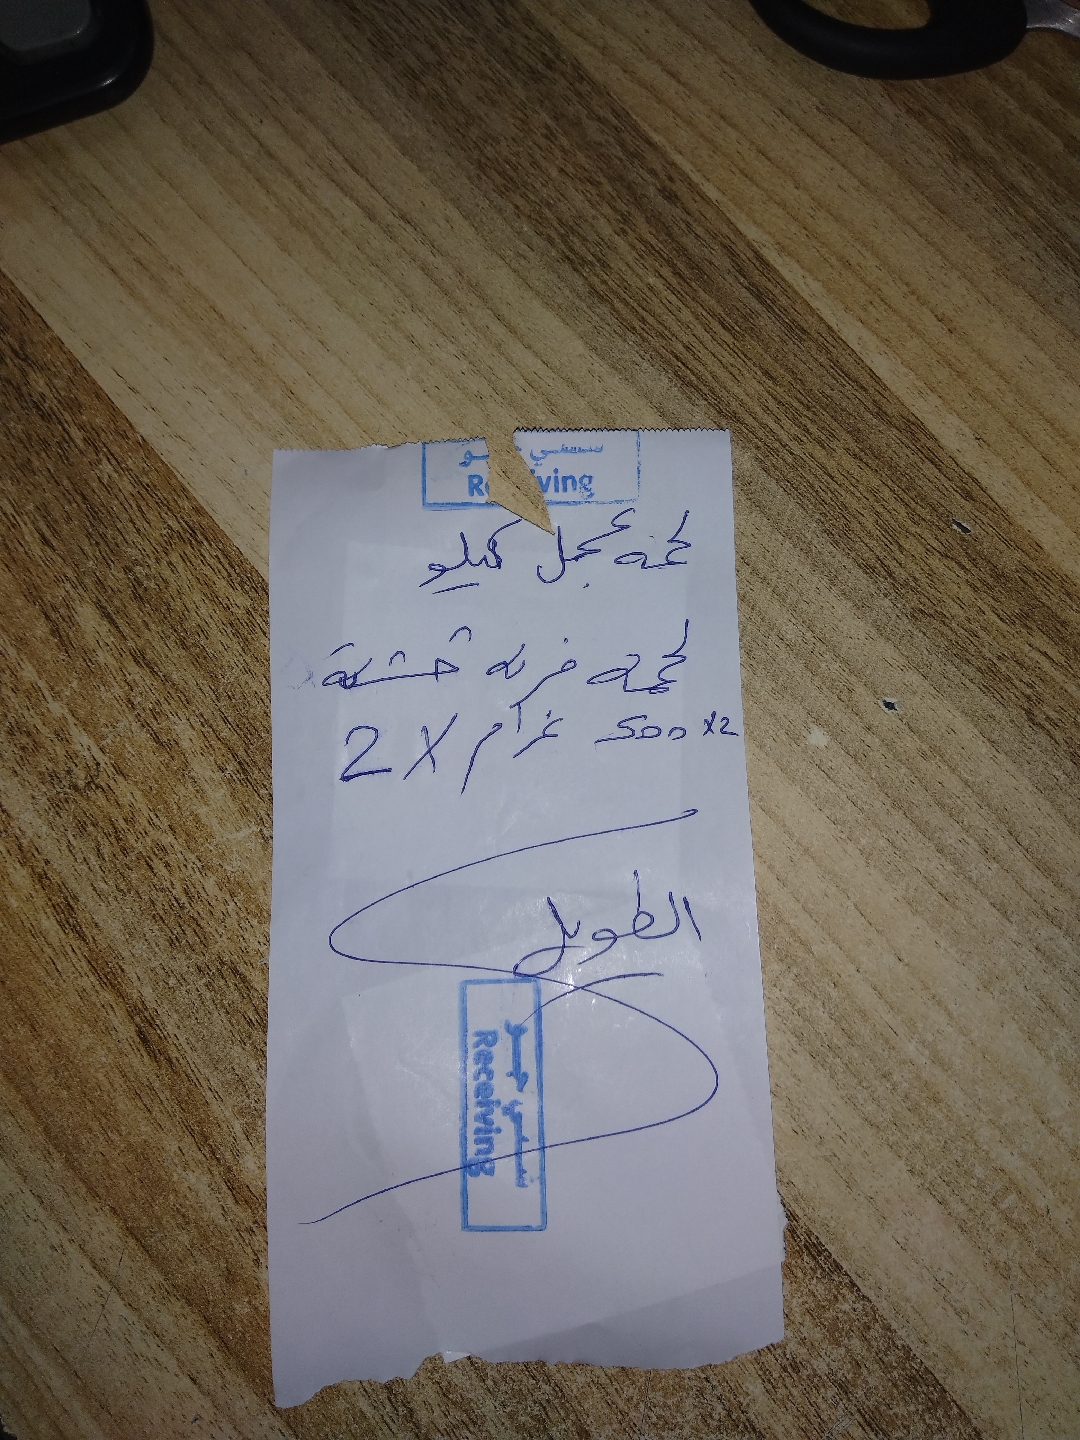 Receiving
لحمة عجل كيلو
لحمة فرمة خشنة
500 x2 غرام X 2
الطويل
Receiving